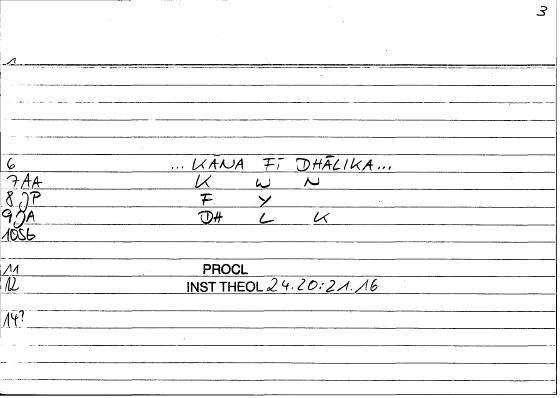 3
1
6 ... KĀNA FĪ DHĀLIKA...
7AA K W N
8JP F Y
9JA DH L K
10Sb
11 PROCL
12 INST THEOL 24.20:21.16
14?